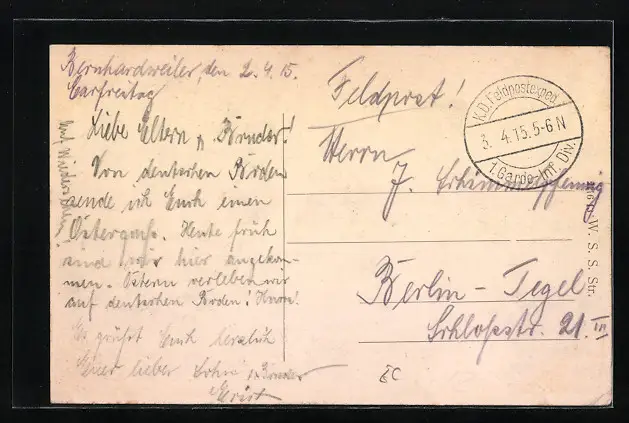 Bernhardsweiler, den 2.4.15.
Carfreitag
Liebe Eltern u. Bruder!
Von deutschen Boden
sende ich Euch einen
Ostergruß. Heute früh
sind wir hier angekom-
men. Ostern verleben wir
auf deutschen Boden! Hurra!
Es grüßt Euch herzlich
Euer lieber Sohn u. Bruder
Auf Wiedersehen!
Feldpost!
K.D. Feldpostexped.
3. 4. 15. 5-6 N
1. Garde-Inf. Div.
Herrn
J. Schimmelpfennig
Berlin-Tegel
Schloßstr. 21. III
W. S. S. Str.